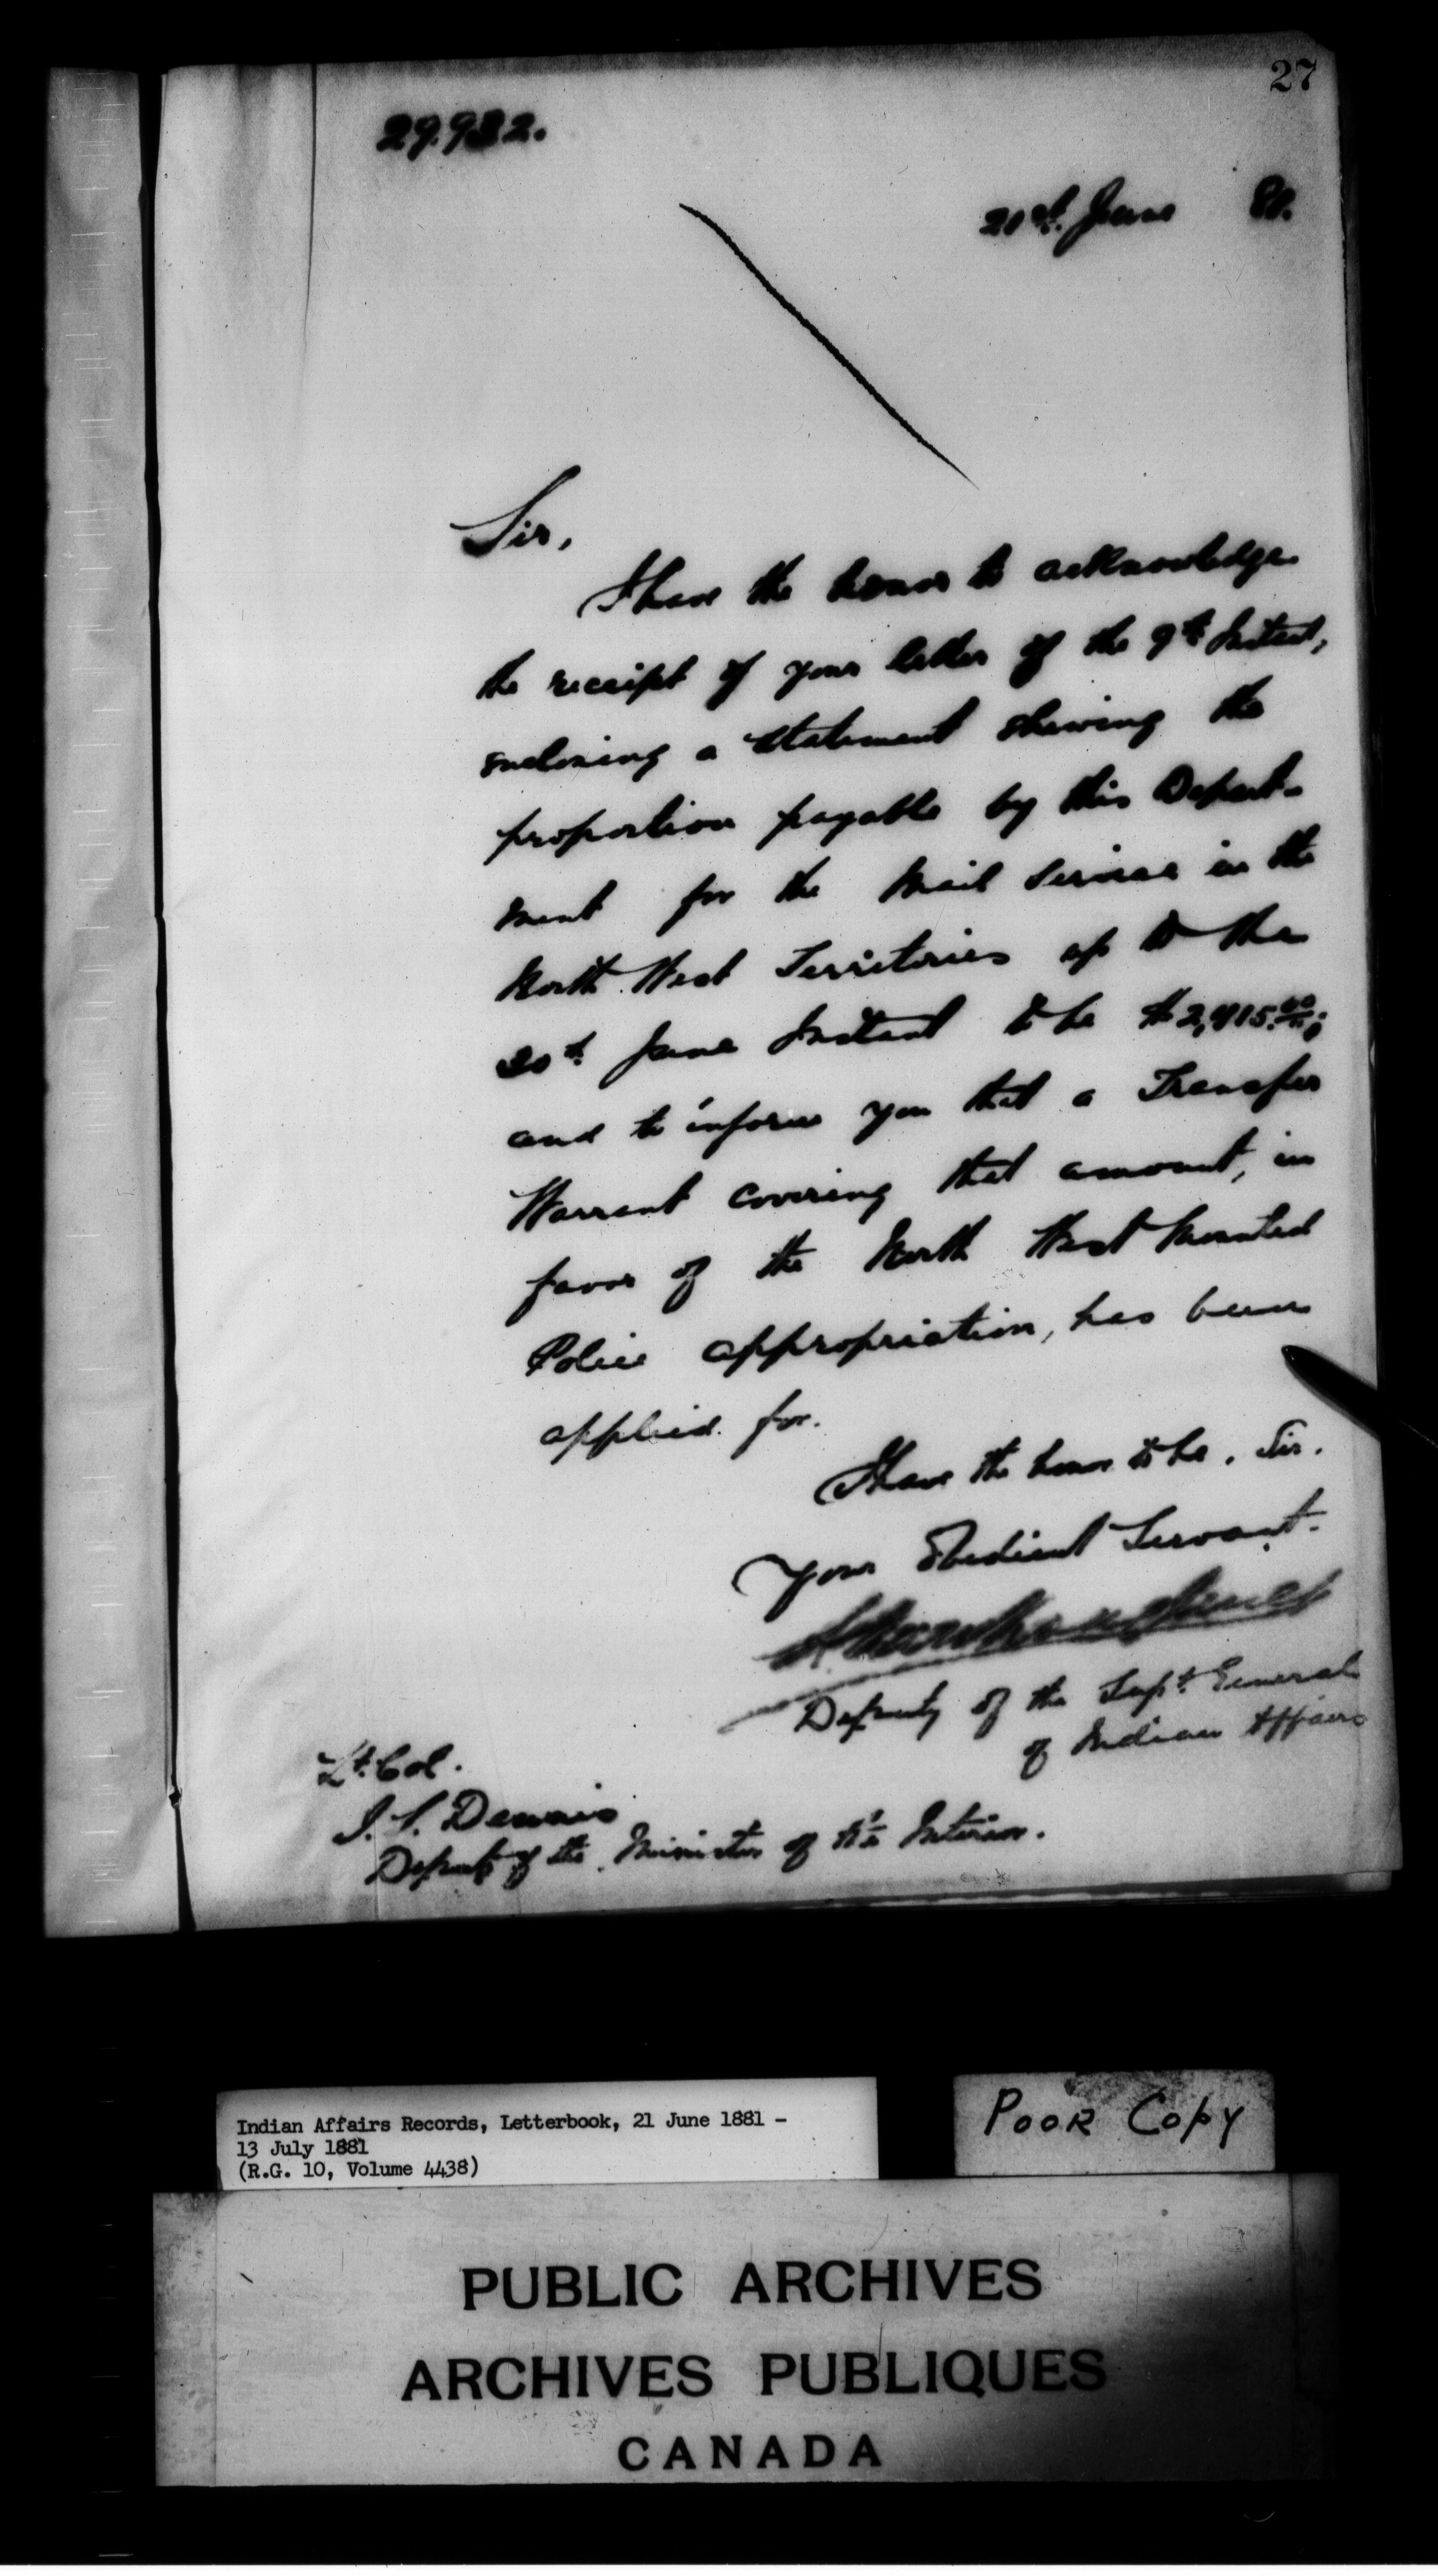 27
29.932.
21st. June 81.
Sir,
I have the honor to acknowledge
the receipt of your letter of the 9th Instant,
enclosing a Statement shewing the
proportion payable by this Depart-
ment for the Mail Service in the
North West Territories up to the
30th June Instant to be
and to inform you that a Transfer
Warrant covering that amount, in
favor of the North West Mounted
Police appropriation, has been
applied for.
I have the honor to be, Sir.
Your Obedient Servant.
Deputy of the Supt. General
of Indian Affairs
Lt. Col.
J. S. Dennis
Deputy of the Minister of the Interior.
Indian Affairs Records, Letterbook, 21 June 1881 -
13 July 1881
(R.G. 10, Volume 4438)
POOR COPY
PUBLIC ARCHIVES
ARCHIVES PUBLIQUES
CANADA